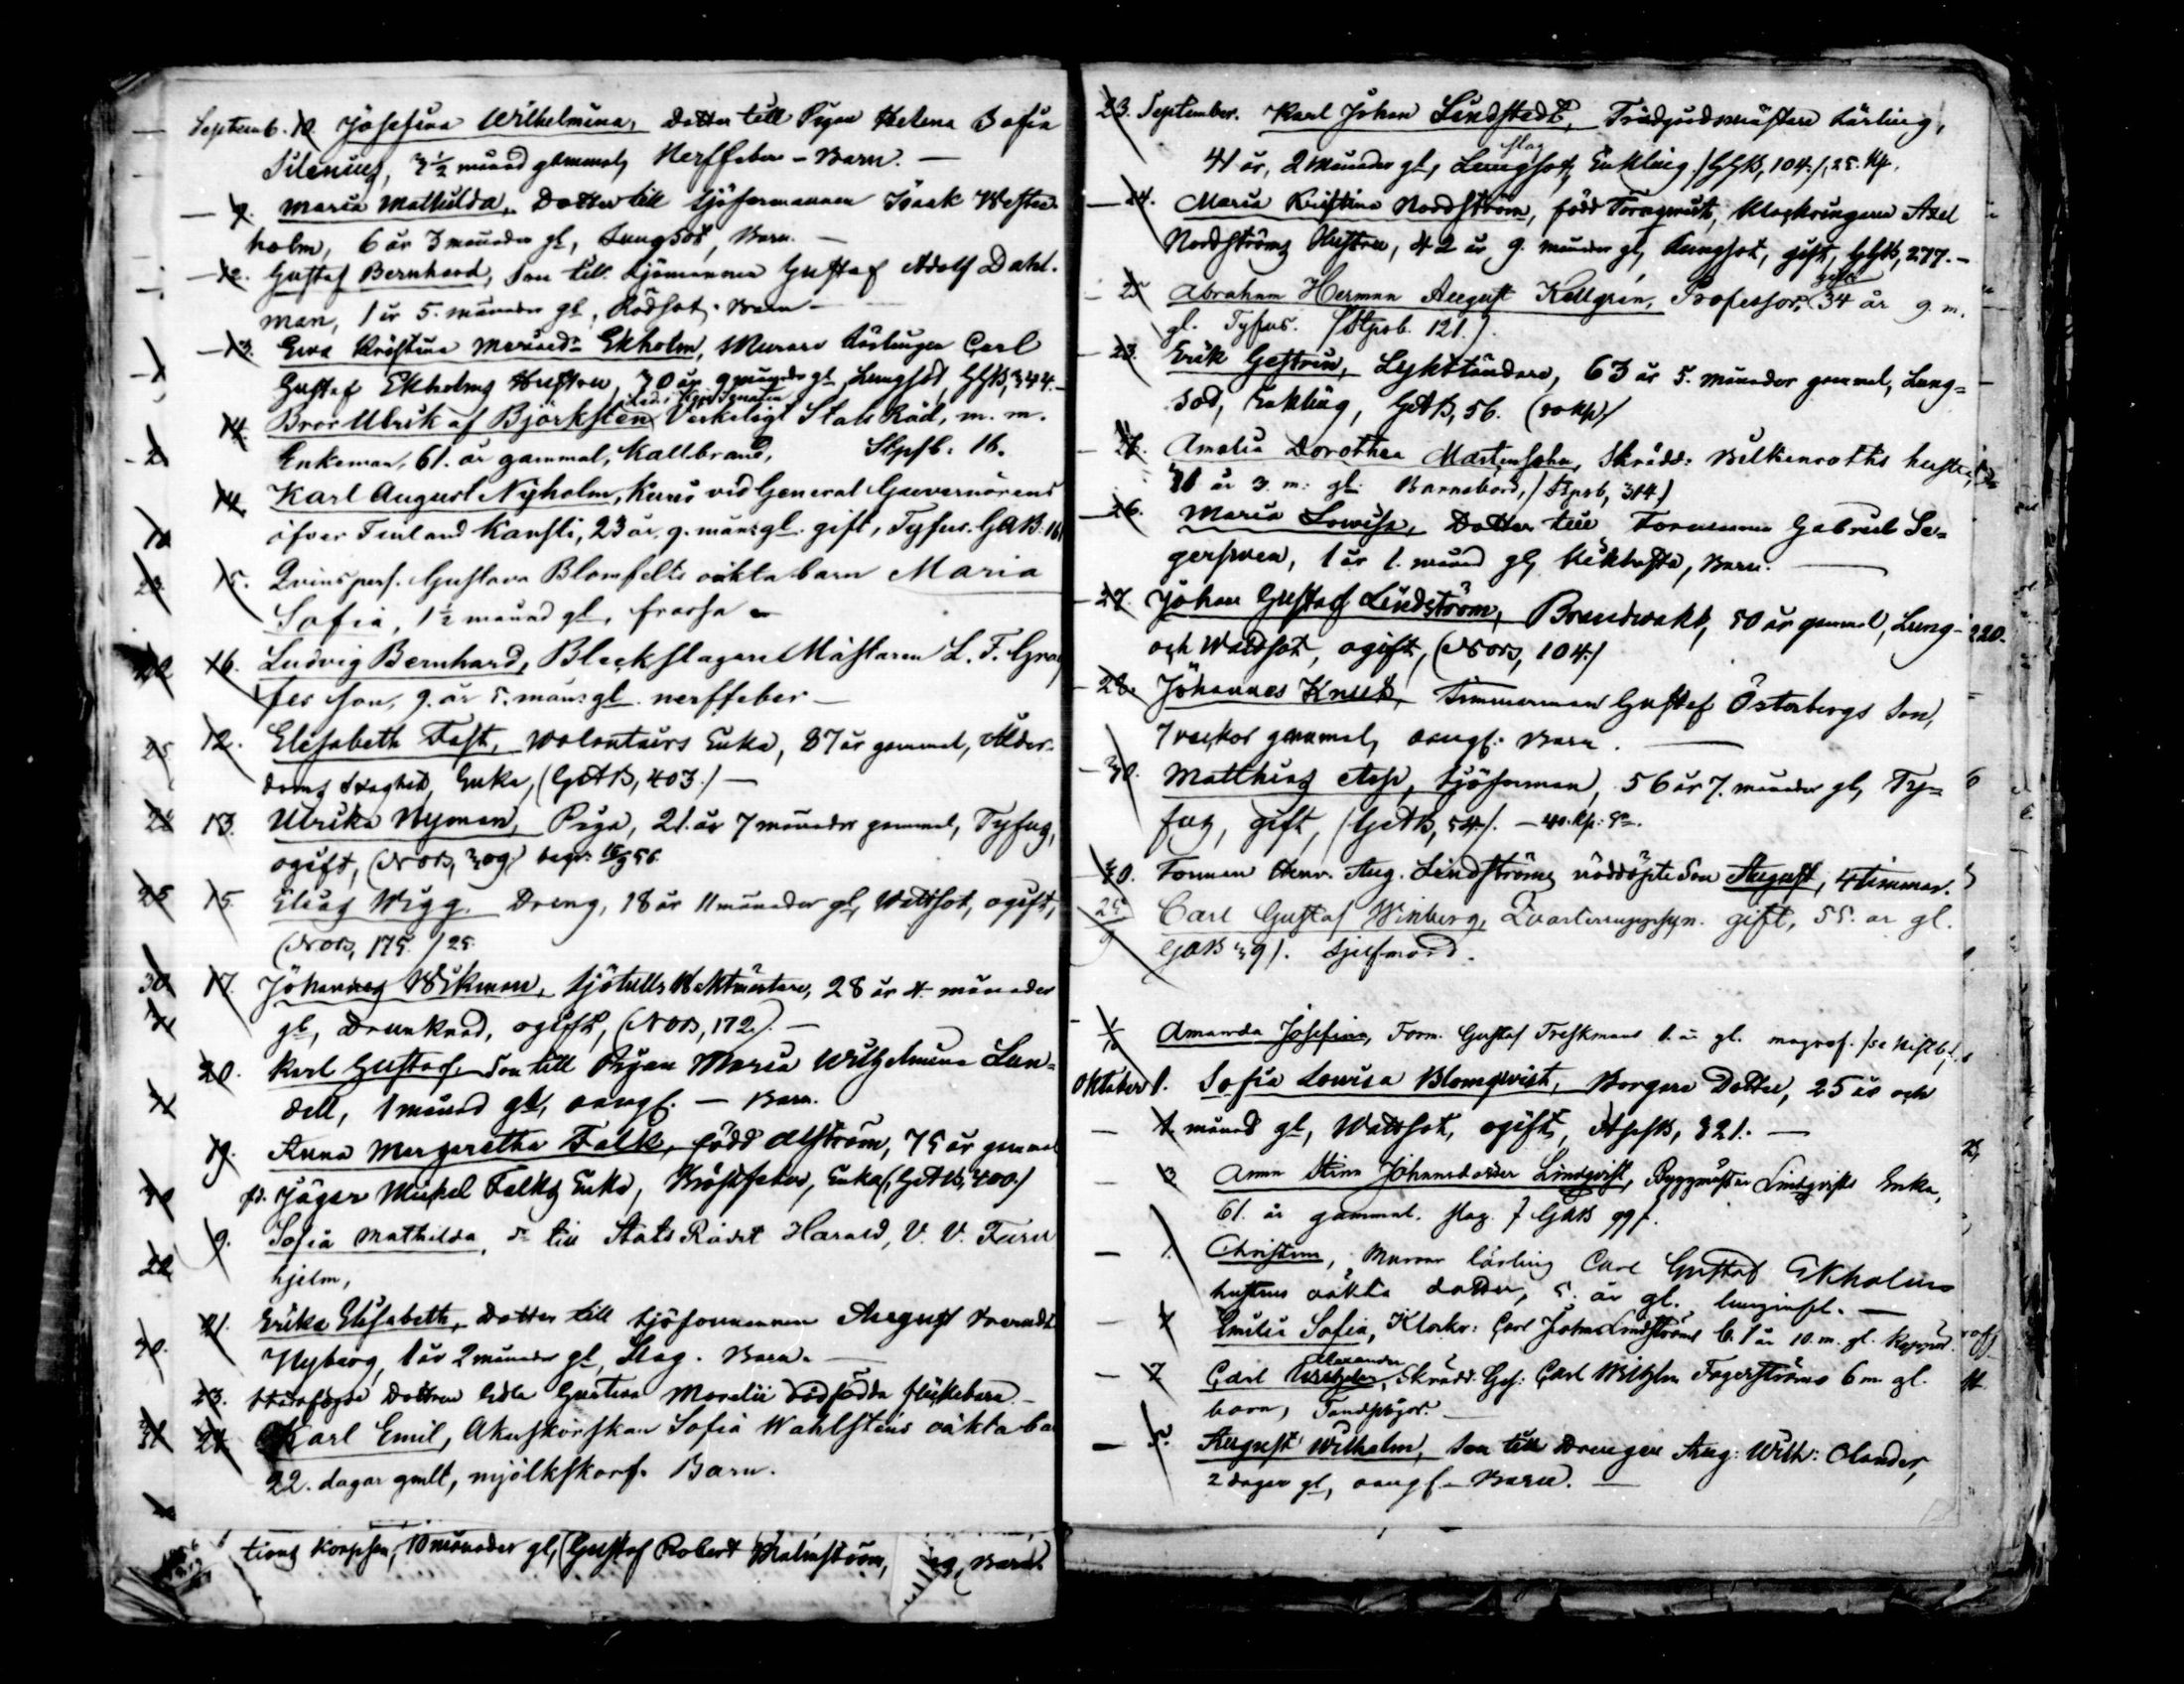 Septemb. 10. Josefina Wilhelmina, Dotter till Pigan Helena Sofia
Silenius, 3½ månad gammal, Nerffeber - Barn. —
9. Maria Mathilda, Dotter till Sjöformannen Isaak Wester-
holm, 6 år 3 månader gl, Lungsot, Barn. —
12. Gustaf Bernhard, Son till Sjömannen Gustaf Adolf Dahl-
man, 1 år 5. månader gl, Rödsot. Barn —
13. Eva Kristina Ekholm, Murare Lärlingen Carl
Gustaf Ekholms Hustru, 30 år 9 månader gl, Lungsot, 344. —
14. Bror Ulrik af Björksten Verkeligt Stats Råd, m. m.
Enkeman, 61. år gammal, Kallbrand, 16.
14. Karl August Nyholm, vid General Guvernörens
öfver Finland Kansli, 23 år. 9. mån: gl. gift, Tyfus. GAB. 161
15. Qvinspers. Gustava Blomfelts oäkta barn Maria
Sofia, 1½ månad gl, frossa
16. Ludvig Bernhard, Bleckslagare Mästaren L. F. Gra
fes son, 9. år 5. mån: gl. nerffeber —
12. Elisabeth Fast, Enka, 87 år gammal, Ålder-
doms svaghet, Enka, (GAB, 403.) —
13. Ulrika Nyman, Piga, 21. år 7 månader gammal, Tyfus,
ogift, 309.) begr: 56.
15. Elias Wigg, Dreng, 18 år 11 månader gl, Wattsot, ogift,
175. / 25.
17. Johannes Wikman, Sjötulls Waktmästare, 28 år 4. månader
gl, Drunknad, ogift, 172.). —
20. Karl Gustaf, Son till Pigan Maria Wilhelmina Lun-
dell, 1 månad gl, — Barn.
19. Anna Margaretha Falk, född Alström, 75 år gammal
fd. Jäger Mickel Falks Enka, Bröstfeber, Enka (GAB, 400.)
9. Sofia Mathilda, till Stats Rådet Harald, V. V. Furu
hjelm,
21. Erika Elisabeth, Dotter till Sjöformannen August
Nyberg, 1 år 2 månader gl, Slag. Barn. —
23. Dottren Gustava dödfödda flickebarn. —
24 Karl Emil, Akuskörskan Sofia Wahlstens oäkta ba
22. dagar gmlt, mjölkskorf. Barn.
tions Korpsen, 10 månader gl, (Gustaf Robert Malmström, Barn.
23. September. Karl Johan Lindstedt, Trädgårdsmästare Lärling,
41 år, 2 månader gl, Lungsot, slag Enkling. 104. / 25. Kp.
24. Maria Kristina Nordström, född Törnqvist, Klockringare Axel
Nordströms Hustru, 42 år 9. månader gl, Lungsot, gift, 277. —
25 Abraham Herman August Kellgren, Professor, gift 34 år 9. m.
gl. Tyfus. 121.)
23. Erik Gestrin, Lyktändare, 63 år 5. månader gammal, Lung-
sot, Enkling, GAB, 56. (20 Kp)
Amalia Dorothea Mårtensohn, Skrädd: Bilkenroths hustru,
31 år 3. m: gl: Barnsbörd, 314.)
26. Maria Lovisa, Dotter till Formannen Gabriel Se-
gersven, 1 år 1. månad gl, Kikhosta, Barn. —
27. Johan Gustaf Lindström, Brandwakt, 50 år gammal, Lung-
och Wattsot, ogift, 104.)
28. Johannes Timmerman Gustaf Österbergs Son,
7 veckor gammal, Barn. —
30. Matthias Asp, Sjöforman, 56 år 7. månader gl, Ty-
fus, gift, (GAB, 54). — 40. Kp.
30. Forman Henr. Aug. Lindströms nöddöpte Son August, 4 timmar.
25/9 Carl Gustaf Winberg, gift, 55. år gl.
GAB 39). Sjelfmord.
1/10 Amanda Josefina, Form. Gustaf Treskmans 1. år gl.
Oktober 1. Sofia Lovisa Blomqvist, Borgare Dotter, 25 år och
1. månad gl, Wattsot, ogift, 321. —
3 Anna Stina Johansdotter Lindqvist, Byggmästar Lindqvists Enka,
61. år gammal. slag. GAB 99).
1. Christina, Murar lärling Carl Gustaf Ekholms
hustrus oäkta dotter, 5. år gl. lunginfl. —
4 Emilia Sofia, Klockr: Carl Johan Lindströms 1 år 10. m. gl.
7 Carl Alexander, Skrädd. Ges: Carl Wilhelm Fagerströms 6 m. gl.
barn,
5. August Wilhelm, Son till Drengen Aug: Wilh: Olander,
2 dagar gl, Barn. —